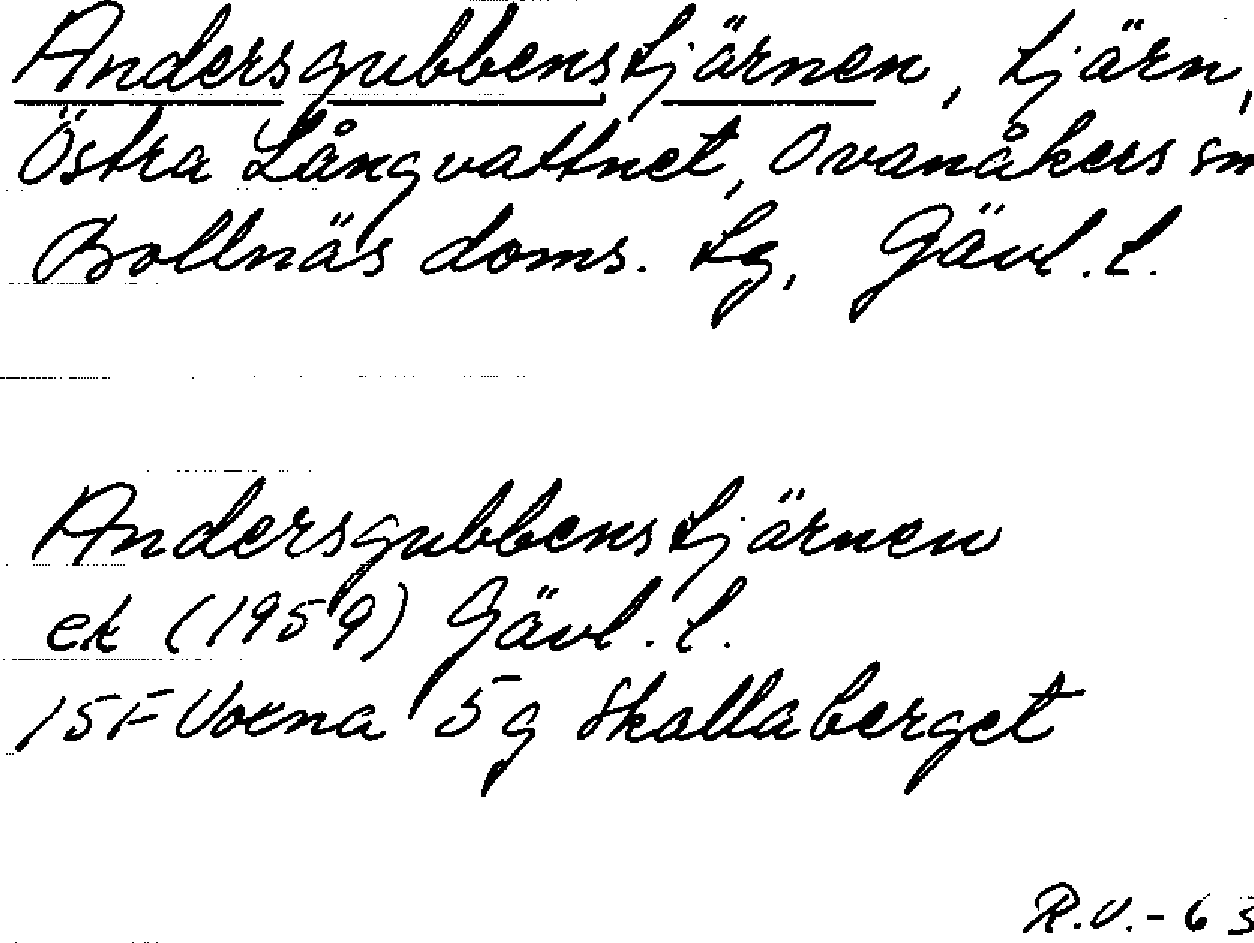 Andersgubbenstjärnen, tjärn,
Östra Långvattnet, Ovanåkers sn
Bollnäs doms. tg, Gävl. l.
Andersgubbenstjärnen
ek (1959) Gävl. l.
15F Voxna 5g Skallaberget
R.V.-63